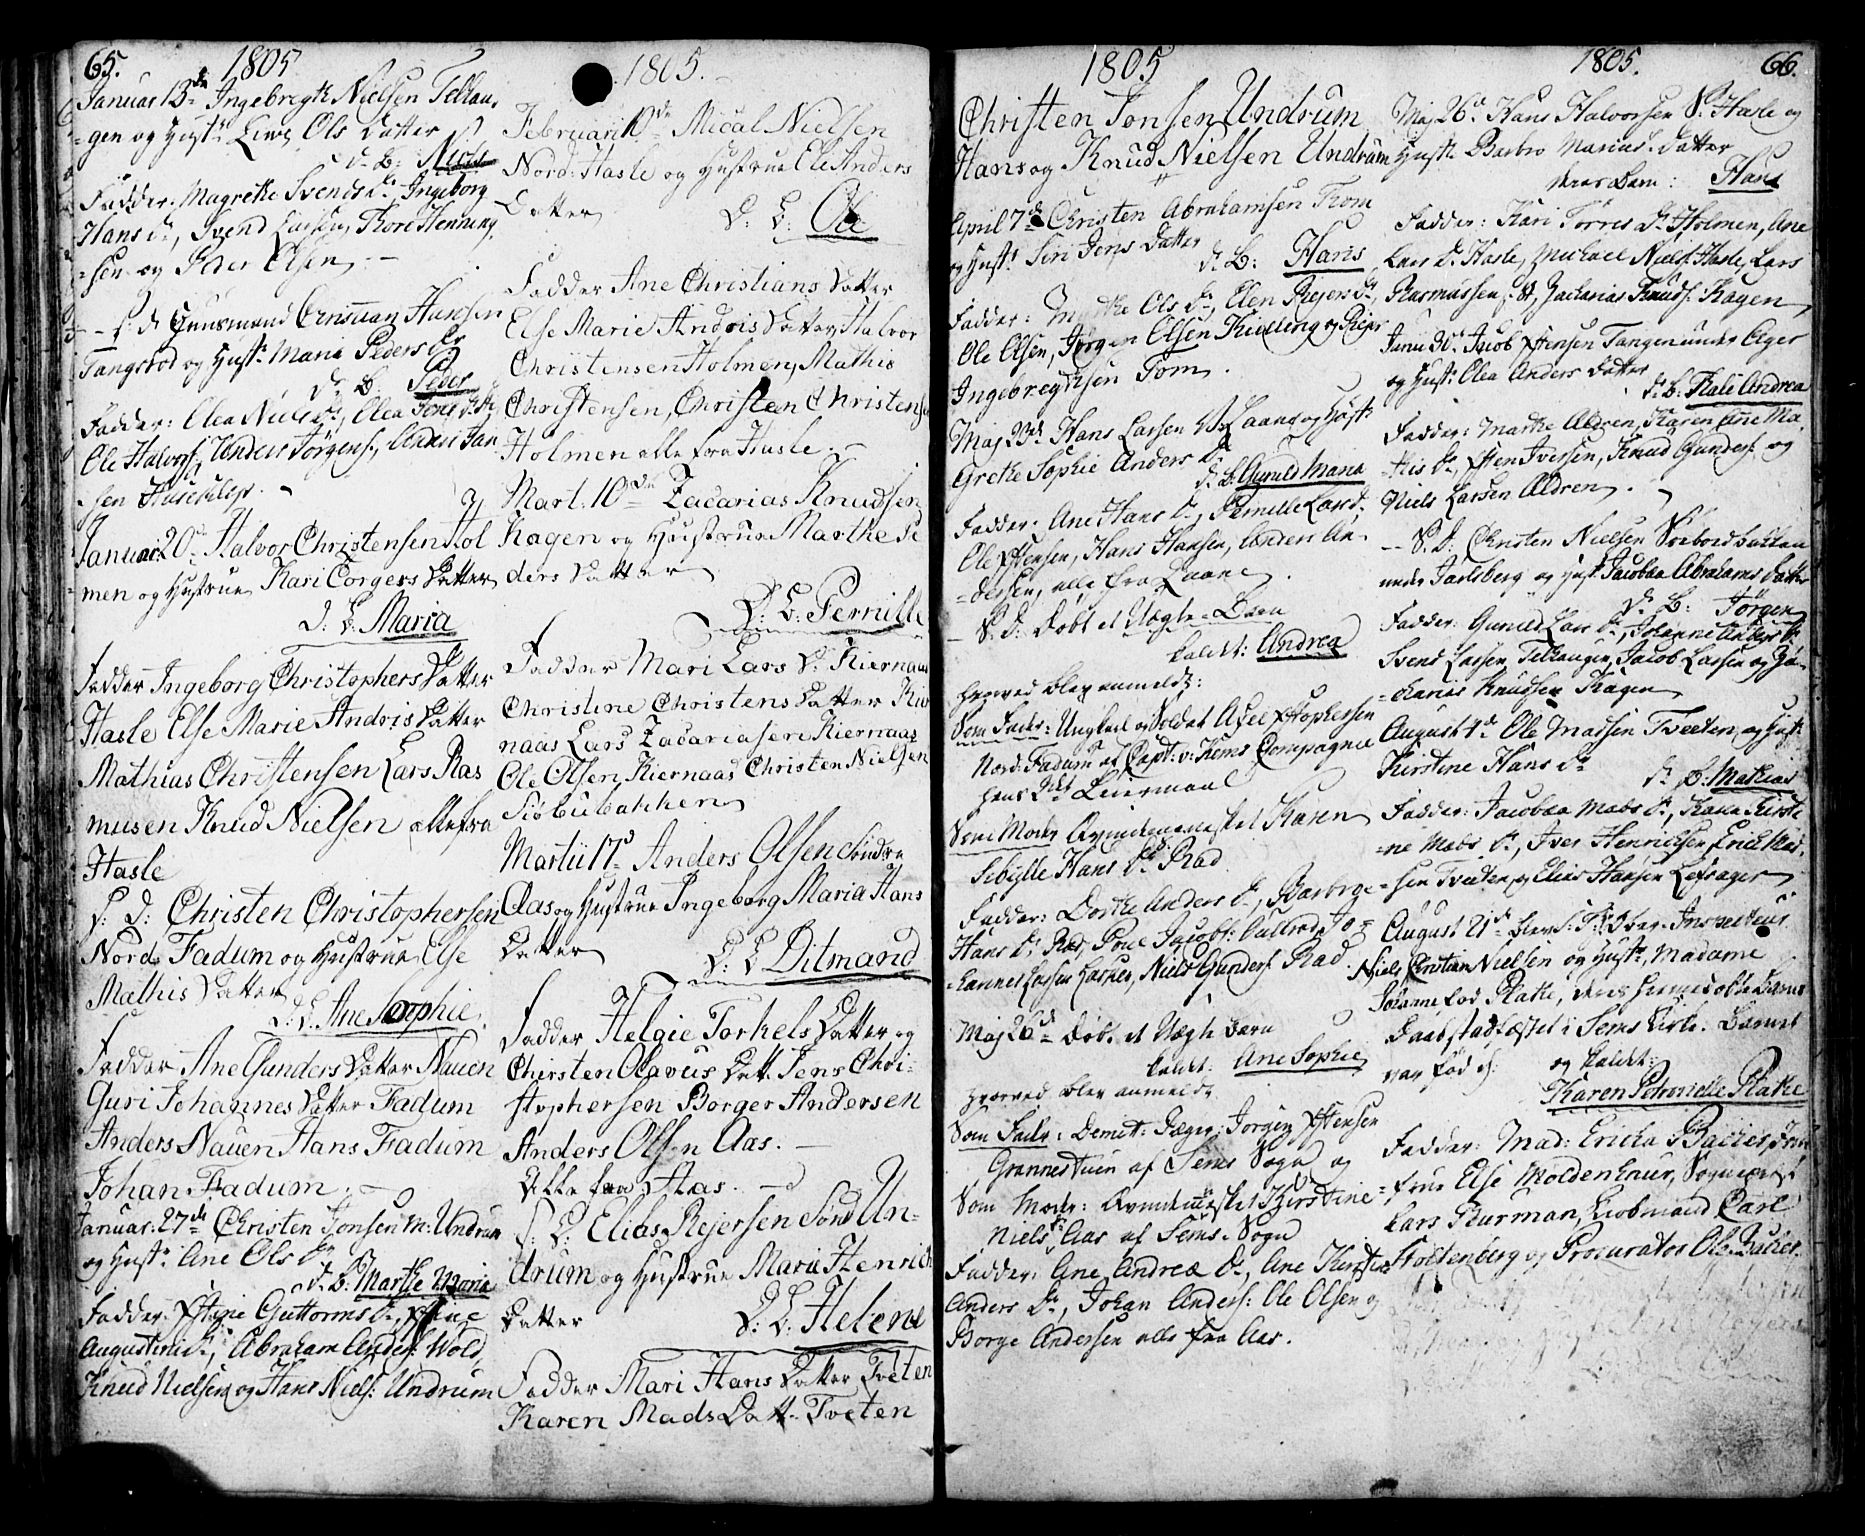 65. 1805
Januar 13de Ingebregth Nielsen Tellan-
-gen og Hustr Live Ols Datter
d. B: Niels
Fadder: Magrethe Svends Dr, Ingeborg
Hans dr, Svend Larsen, Thore Henning-
-sen og Peder Olsen
S: d: Huusmand Christian Hansen
Tangsrød og Hustr Maria Peders Dr
d. B: Peder
Fadder: Elea Niels Dr, Elea Jens Dr
Ole Halvors:, Anders Jørgens:, Anders Jan-
-sen
Januar 20de Halvor Christensen Hol
men og Hustrue Kari Torgers Datter
D: B: Maria
Fadder Ingeborg Christophers Datter
Hasle Else Marie Andris Datter
Mathias Christensen Lars Ras
musen Knud Nielsen alle fra
Hasle
S: D: Christen Christophersen
Nord: Fadum og Hustrue Else
Mathis Datter
D: B: Ane Sophie
Fadder Ane Gunders Datter Nauen
Guri Johannes Datter Fadum
Anders Nauen Hans Fadum
Johan Fadum
Januar: 27de Christen Jonsen M: Undrum
og Hustr Ane Ols Dr
d. B: Marthe Maria
Fadder: Guttorms Dr,
Augustini Dr, Abraham Anders: Wold,
Knud Nielsen og Hans Niels: Undrum
1805.
Februarii 10de Mical Nielsen
Nord: Hasle og Hustrue Ele Anders
Datter
D: B: Ole
Fadder Ane Christians Datter
Else Marie Andris Datter Halvor
Christensen Holmen, Mathis
Christensen, Christen Christensen
Holmen alle fra Hasle
Mart: 10de Zacarias Knudsen
Kagen og Hustrue Marthe Pe
ders Datter
D: B: Pernille
Fadder Mari Lars D: Kiernaas
Christine Christens Datter Kier
naas Lars Zacariasen Kiernaas
Ole Olsen Kiernaas Christen Nielsen
Siøbubakken
Martii 17de Anders Olsen Sondre
Aas og Hustrue Ingeborg Maria Hans
Datter
D: B Ditmand
Fadder Helgie Torkels Datter og
Chirsten Olavus Datt. Jens Chri-
stophersen Borger Andersen
Anders Olsen Aas.
Alle fra Aas.
S: D: Elias Rejersen Sønd Un-
drum og Hustrue Maria Henrich
Datter
D: B: Helene
Fadder Mari Hans Datter Tveten
Karen Mads Datt. Tveten
1805
Christen Jonsen Undrum
Hans og Knud Nielsen Undrum
April 7de Christen Abrahamsen Trom
og Hustr Siri Jens Datter
d. B: Hans
Fadder: Marthe Ols Dr, Elen Rejers Dr,
Ole Olsen, Jørgen Olsen Kielling og Rejer
Ingebregthsen Tom.
Maj 23de Hans Larsen V: Laane og Hustr
Grethe Sophie Anders Dr
d. B. Gunild Maria
Fadder: Ane Hans Dr, Pernille Lars Dr.
Ole Stensen, Hans Hansen, Anders An-
-dersen, alle fra Laane.
S: D: Døbt et Uægte Barn
kaldet: Andrea
Hvorved blev anmeldt:
Som Fader: Ungkarl og Soldat Axel Stophersen
Nord: Fadum af Capt: v: Kems Compagnie
hans Leiermaal
Som Moder Qvindemennesket Karen
Sibylle Hans Dr Rad
Fadder: Dorthe Anders Dr, Barbroe
Hans Dr Rad, Poul Jacobs: Jo-
-hannes Larsen, Niels Gunders: Rad
Maj 26de Døb. et Uægte Barn
kaldet: Ane Sophie
Hvorved blev anmeldt
Som Fader: Demitt: Jæger Jørgen Stensen
Grannestuen af Sems Sogn og
Som Moder: Qvindemennesket Kirstine
Niels Dr Aas af Sems Sogn
Fadder: Ane Andreæ Dr, Ane Kirstine
Anders Dr, Johan Anders: Ole Olsen og
Borge Andersen alle fra Aas.
1805. 66.
Maj 26de Hans Halvorsen N: Hasle og
Hustr Barbro Marius Datter
deres Barn: Hans
Fadder: Kari Torres Dr Holmen, Ane
Lars Dr Hasle, Michael Niels: Hasle, Lars
Rasmussen, Zacharias Knuds: Kagen
Junii 30de Jacob Stensen Tangen under Eger
og Hustr Elea Anders Datter
d. B: Kari Andrea
Fadder: Marthe Aldren, Karen Ane Ma-
-this Dr, Sten Iversen, Knud Gunders: og
Niels Larsen Aldren.
S. D: Christen Nielsen
under Jarlsberg og Hust: Jacobea Abrahams Datter
d: B: Jørgen
Fadder: Gunild Lars Dr, Johanne Anders Dr
Svend Larsen, Tellangen, Jacob Larsen og Za-
-charias Knudsen Kagen
August 4de Ole Madsen Tveeten og Hustr
Kirstine Hans Dr
d. B: Mathias
Fadder: Jacobea Mads Dr, Kirsti-
-ne Mads Dr, Iver Henrichsen, Erich Mad-
-sen Tveeten og Elias Hansen
August 21de blev Inspecteur
Niels Christian Nielsen og Hustr, Madame
Johanne fød Plathe, deres hiemmedøbte Barns
Daab stadfæstet i Sems Kirke. Barnet
var fød d: og kaldet:
Karen Petronelle Plathe
Fadder: Mad: Ericha Backer, Jom-
-frue Else Moldenhaur, Sognepræst
Lars Sturman, Kiøbmand Carl
Stoltenberg og Procurator Ole Backer.